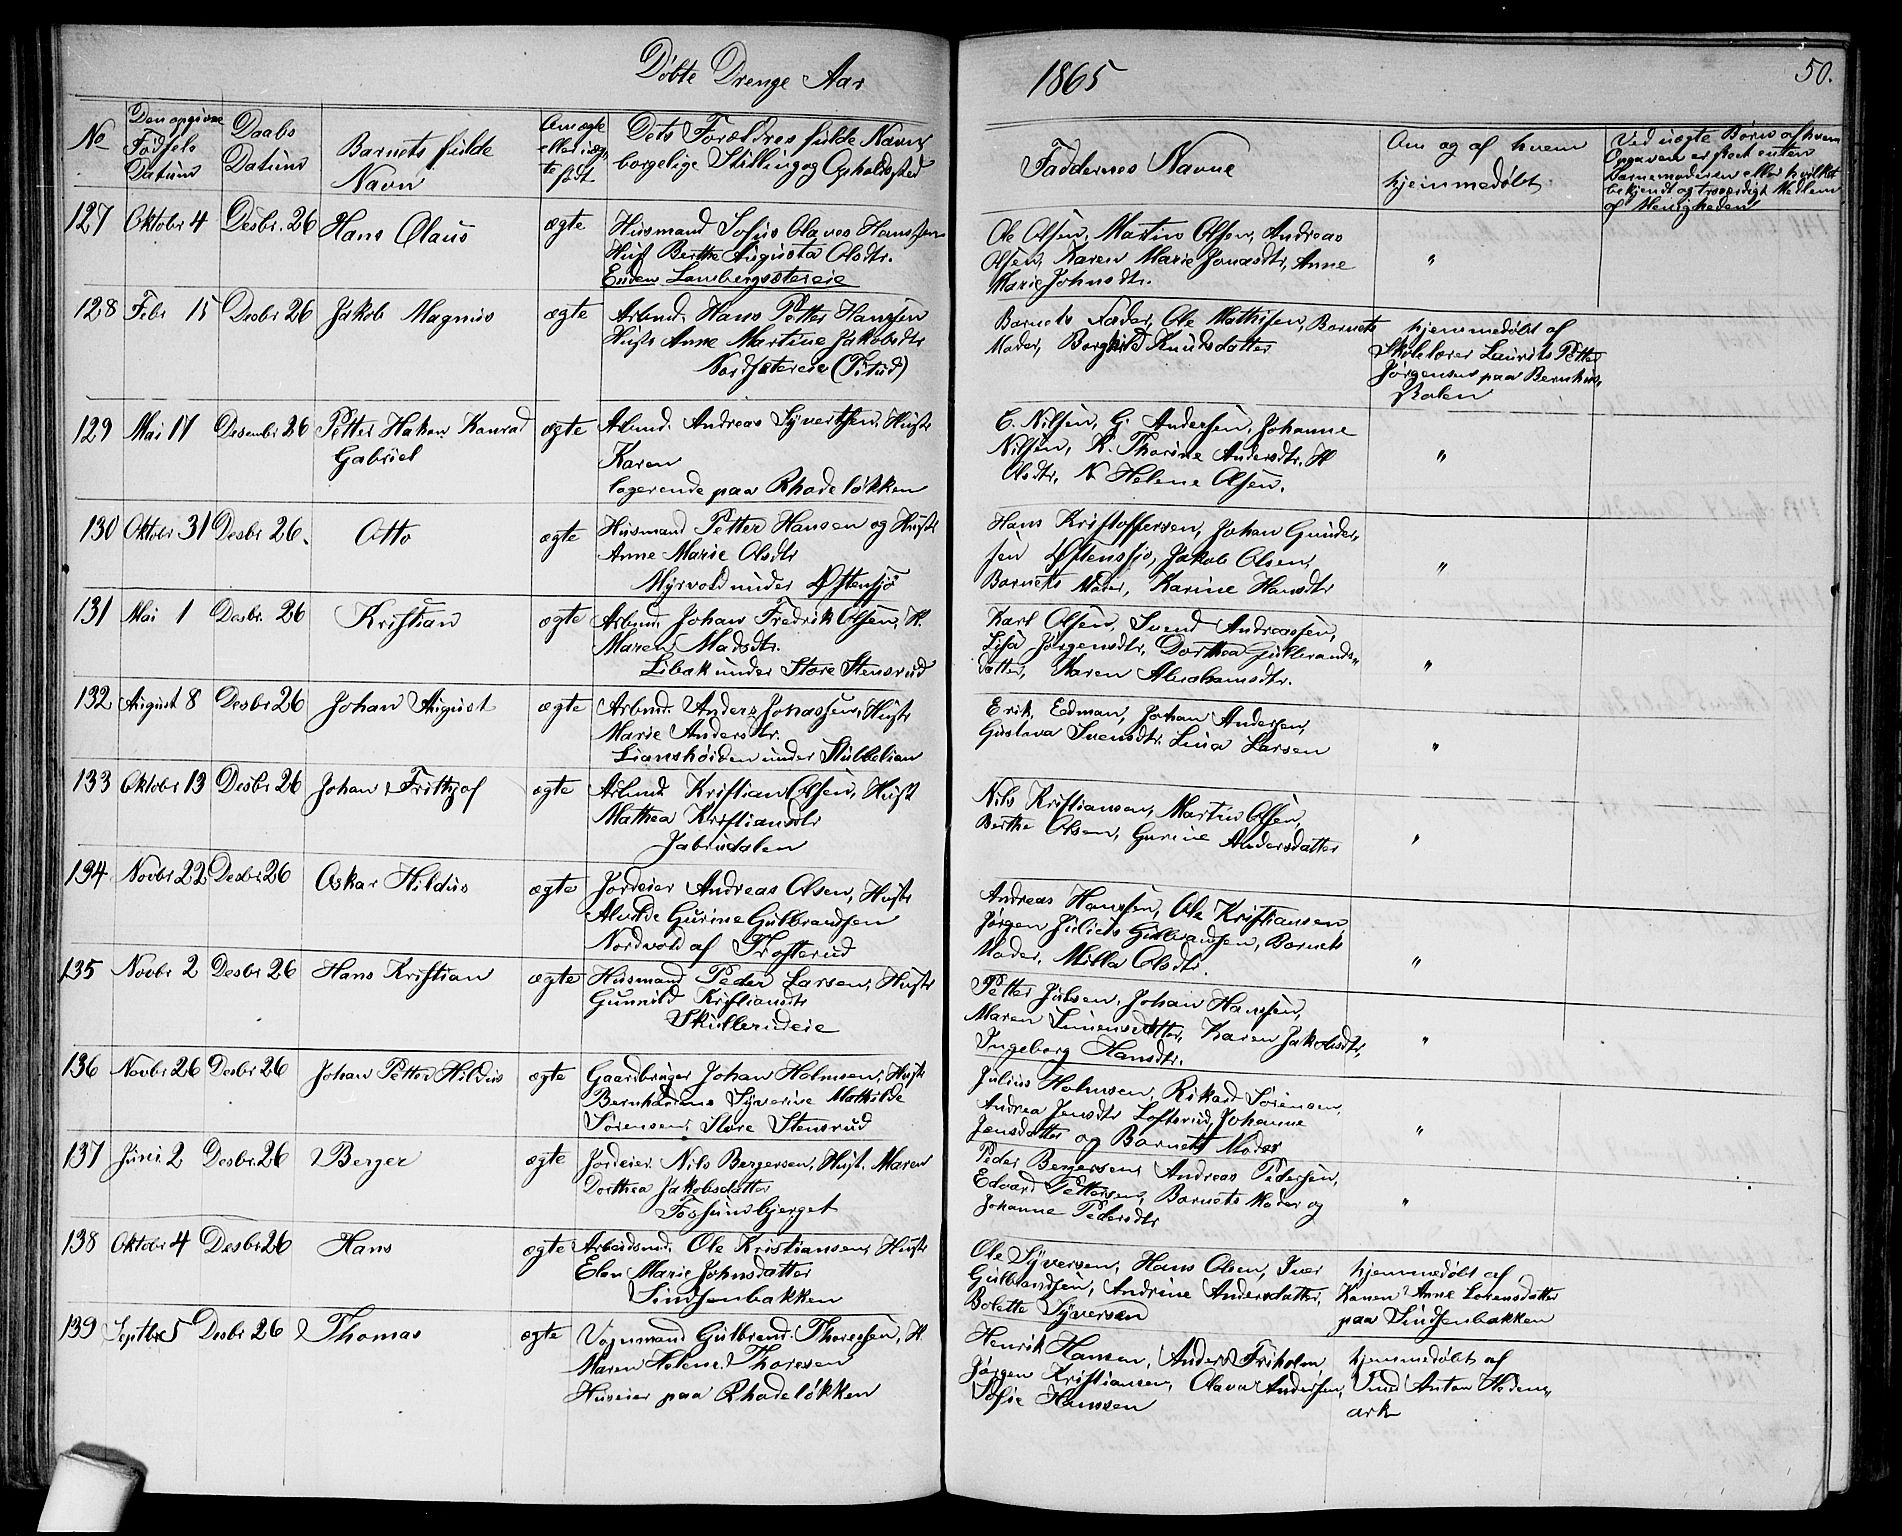 Døbte Drenge Aar 1865
50.
No
Den opgivne Fødsels Datum
Daabs Datum
Barnets fulde Navn
Om ægte eller uægte født
Dets Forældres fulde Navn, borgelige Stilling og Opholdssted
Faddernes Navne
Om og af hvem hjemmedøbt
Ved uægte Børn af hvem Opgaven er skeet enten Barnemoderen eller hvilket bekjendt og troværdigt Medlem af Menigheden
127 Oktobr 4 Desbr. 26 Hans Olaus ægte Husmand Sofus Olaves Hanssen
Hust Berthe Augusta Olsdtr.
Enden Lansbergsætereie
Ole Olsen, Martin Olsen, Andreas
Olsen, Karen Marie Jonasdtr, Anne
Marie Johnsdtr.
"
128 Febr 15 Desbr 26 Jakob Magnus ægte Arbmd. Hans Petter Hansen
Hustr Anne Martine Jakobsdtr
Nordsætereie
Barnets Fader, Ole Mathisen, Barnets
Moder, Borghild Knudsdatter
hjemmedøbt af
Skolelærer Laurits Petter
Jørgensen paa Bernhus,
129 Mai 17 Desembr 26 Petter Hakon Konrad
Gabriel
ægte Arbmd. Andreas Syvertsen, Hustr
Karen
logerende paa Rhodeløkken
E. Nilsen, G. Andersen, Johanne
Nilsen, K. Thorine Andersdtr. H
Olsdtr, N Helene Olsen.
"
130 Oktobr 31 Desbr 26. Otto ægte Husmand Petter Hansen og Hustr
Anne Marie Olsdtr
Myrvold under Østensjø
Hans Kristoffersen, Johan Gunder,
sen Østensjø, Jakob Olsen,
Barnets Moder, Karine Hansdtr
"
131 Mai 1 Desbr. 26 Kristian ægte Arbmd. Johan Fredrik Olsen, H.
Maren Madsdtr.
Libak under Store Stensrud
Karl Olsen, Svend Andreassen,
Lisa Jørgensdtr, Dorthea Gulbrands,
datter, Karen Abrahamsdtr.
"
132 August 8 Desbr 26 Johan August ægte Arbmd. Anders Jonassen, Hustr
Marie Andersdtr.
Lianshøiden under Stubbelian
Erik Edman, Johan Andersen,
Gustava Svensdtr. Lina Larsen
"
133 Oktobr 13 Desbr 26 Johan Frithjof ægte Arbmd. Kristian Olsen, Hust
Mathea Kristiansdtr
Jabindalen
Nils Kristiansen, Martin Olsen,
Berthe Olsen, Gurine Andersdatter
"
134 Novbr 22 Desbr 26 Oskar Hildus ægte Jordeier Andreas Olsen, Hustr
Alvilde Gurine Gulbrandsen
Nordvold af Trosterud
Andreas Hanssen, Ole Kristiansen
Jørgen Julius Gulbrandsen, Barnets
Moder, Milla Olsdtr.
"
135 Novbr 2 Desbr 26 Hans Kristian ægte Husmand Peder Larsen, Hustr
Gunnild Kristiansdtr
Skullerudeie
Petter Julsen, Johan Hanssen,
Maren Simensdatter, Karen Jakobsdtr,
Ingeborg Hansdtr.
"
136 Novbr 26 Desbr 26 Johan Petter Hildus ægte Gaardbruger Johan Holmsen, Hustr
Bernhardine Syverine Mathilde
Sørensen, Store Stensrud
Julius Holmsen, Rikard Sørensen,
Andrea Jensdtr Loftsrud, Johanne
Jensdatter og Barnets Moder
"
137 Juni 2 Desbr 26 Berger ægte Jordeier Nils Bergersen, Hust. Maren
Dorthea Jakobsdatter
Fossumbjerget
Peder Bergersen, Andreas Pedersen,
Edvard Pettersen, Barnets Moder og
Johanne Pedersdtr
"
138 Oktobr 4 Desbr 26 Hans ægte Arbeidsmd. Ole Kristiansen, Hustr
Elen Marie Johnsdatter
Simsenbakken
Ole Syversen, Hans Olsen, Iver
Gulbrandsen, Andrine Andersdatter,
Bolette Syversen
hjemmedøbt af
Konen Anne Lorensdatter
paa Simsenbakken
139 Septbr 5 Desbr 26 Thomas ægte Vognmand Gulbrand Thoresen, H.
Maren Helene Thoresen
Huseier paa Rhodeløkken
Henrik Hansen, Anders Friholm
Jørgen Kristiansen, Olava Andersen,
Sofie Hanssen
hjemmedøbt af
Smed Anton Hedem,
ark